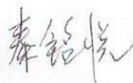 秦铭悦